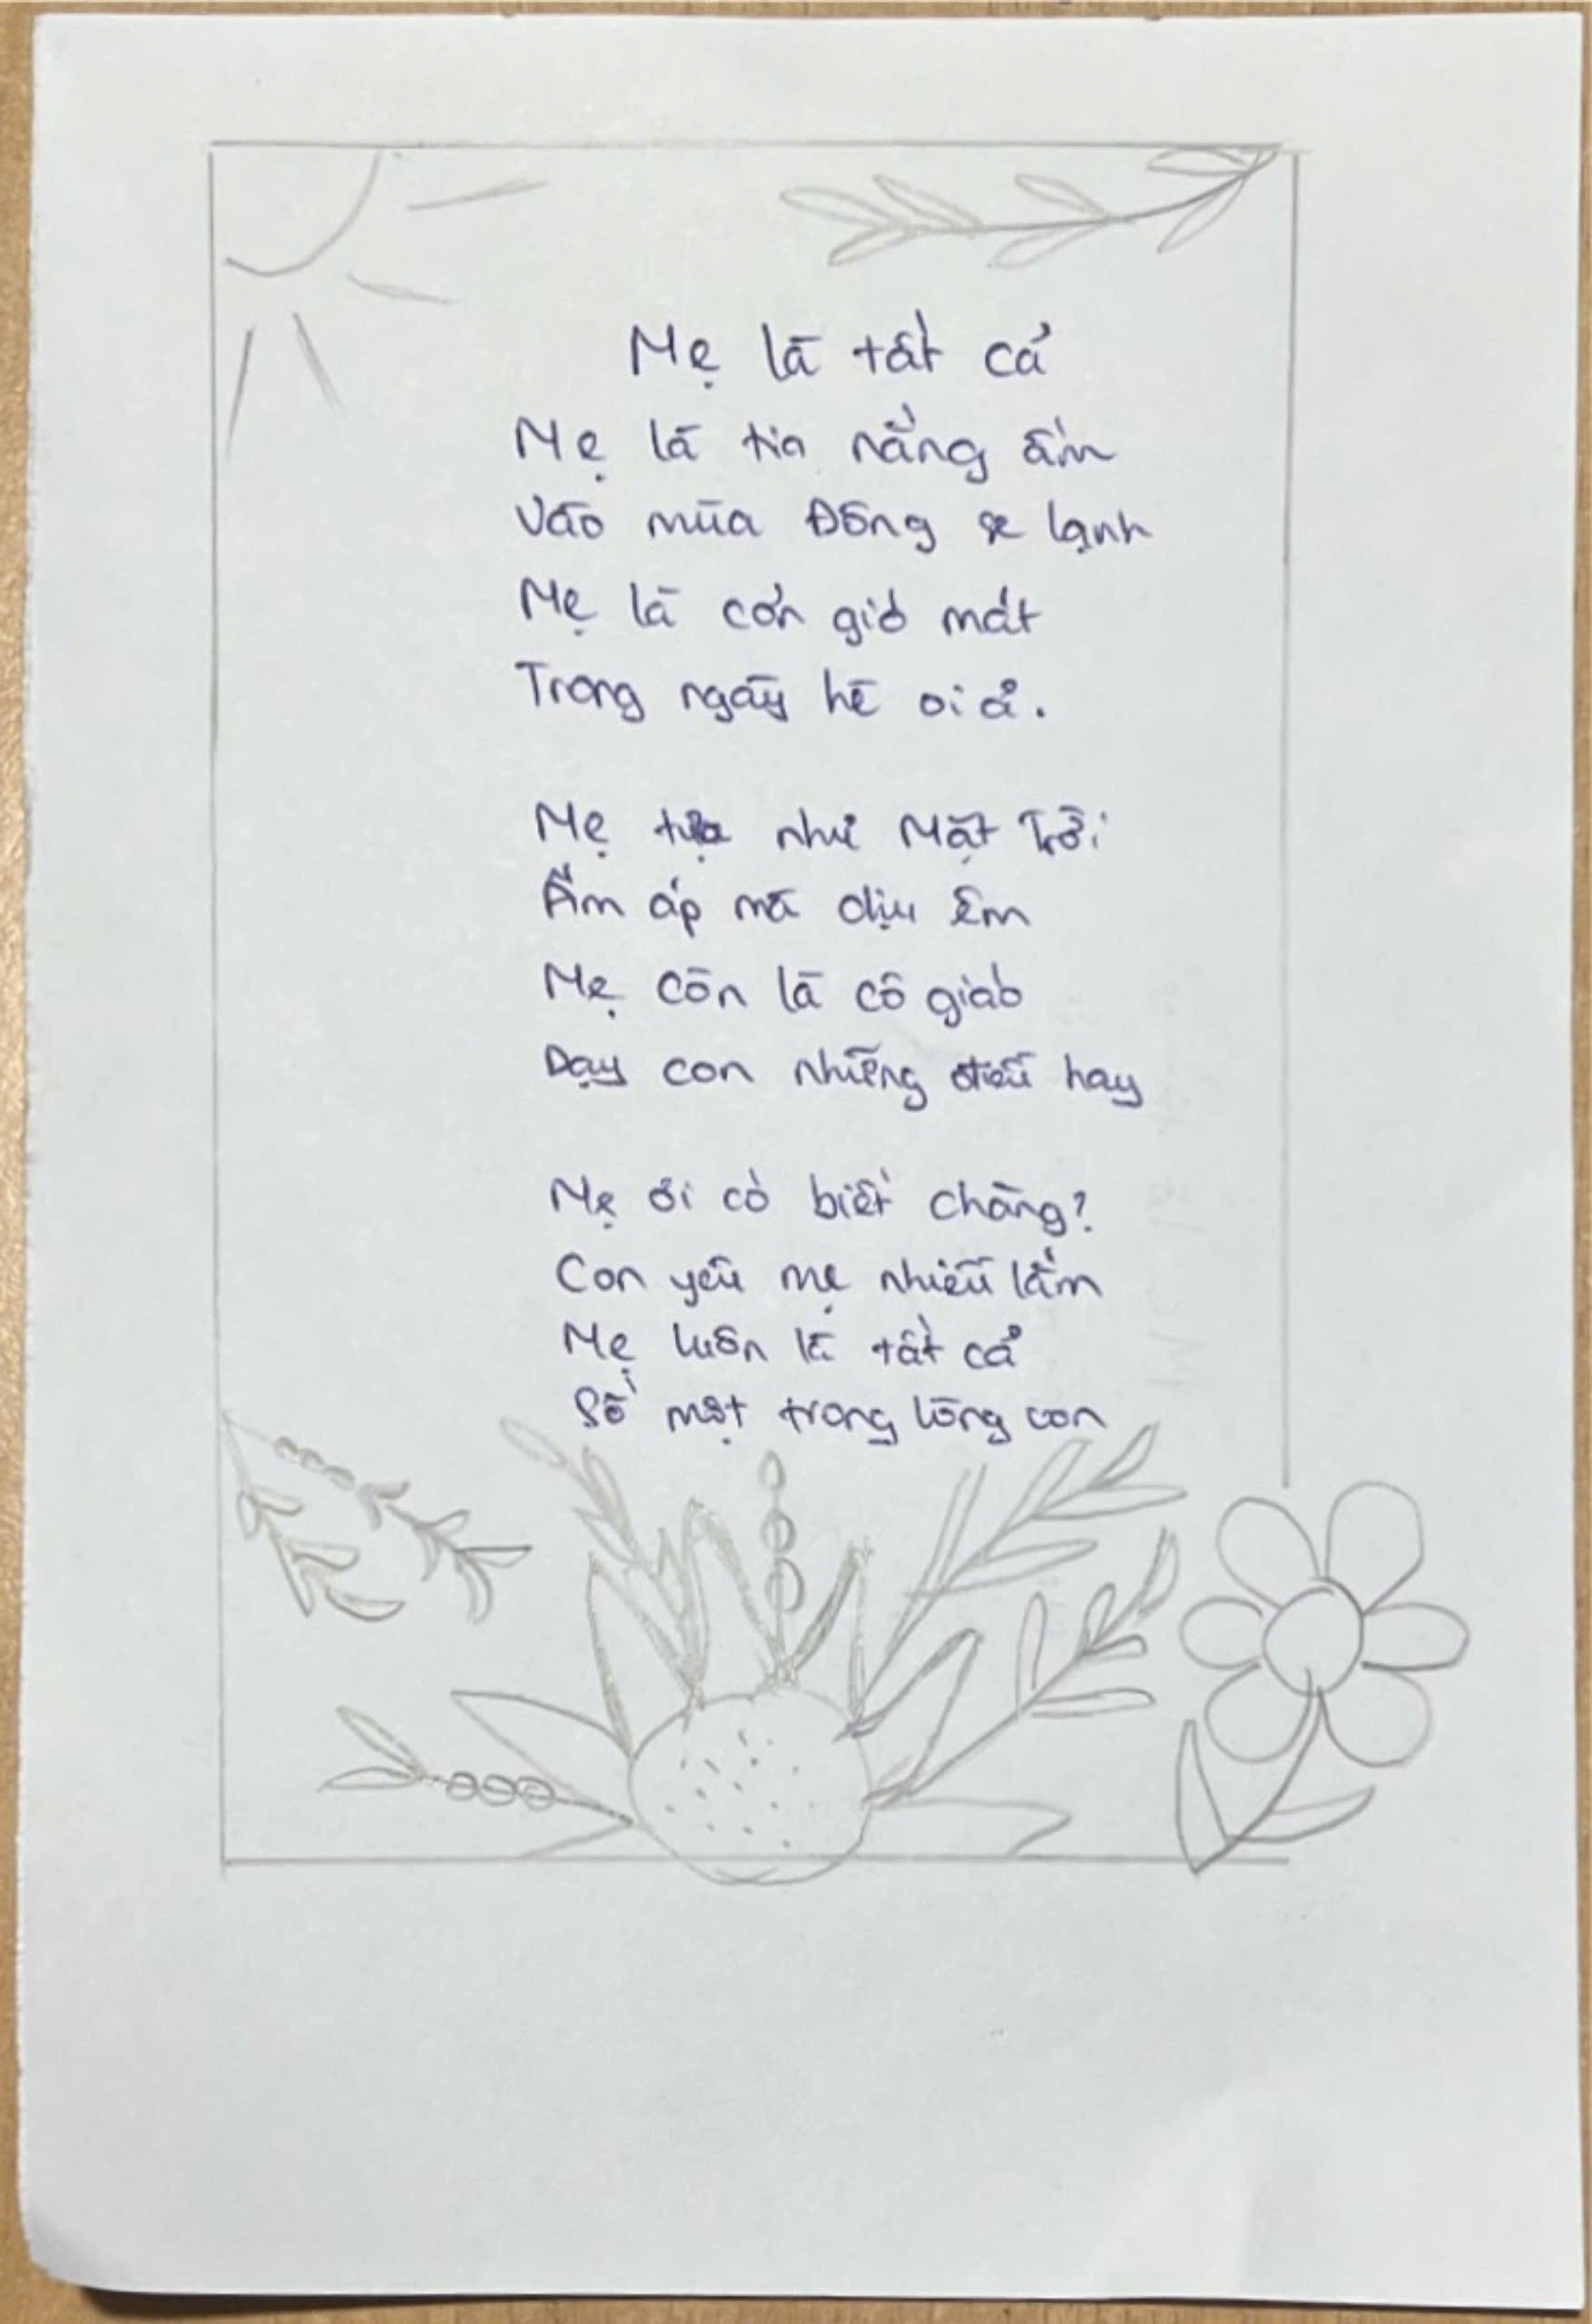 Mẹ là tất cả
Mẹ là tia nắng ấm
Vào mùa Đông se lạnh
Mẹ là cơn gió mát
Trong ngày hè oi ả.
Mẹ tựa như Mặt Trời
Ấm áp mà dịu êm
Mẹ còn là cô giáo
Dạy con những điều hay
Mẹ ơi có biết chăng?
Con yêu mẹ nhiều lắm
Mẹ luôn là tất cả
Số một trong lòng con